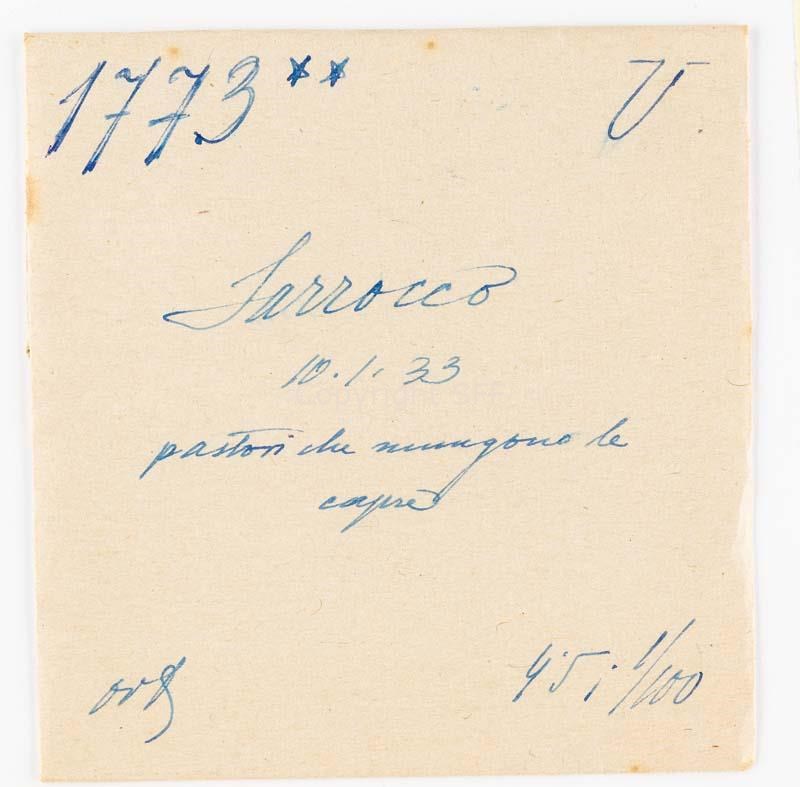 1773** V
Sarrocco
10.1.33
pastori che mungono le
capre
ord
4.5; 1/100